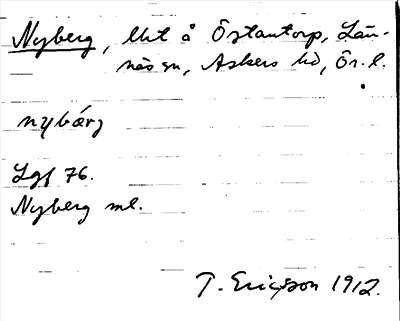 Nyberg, lht å Östantorp, Län-
näs sn, Askers hd, Ör. l.
nybárj
Lgf 76.
Nyberg ml.
T. Ericsson 1912.